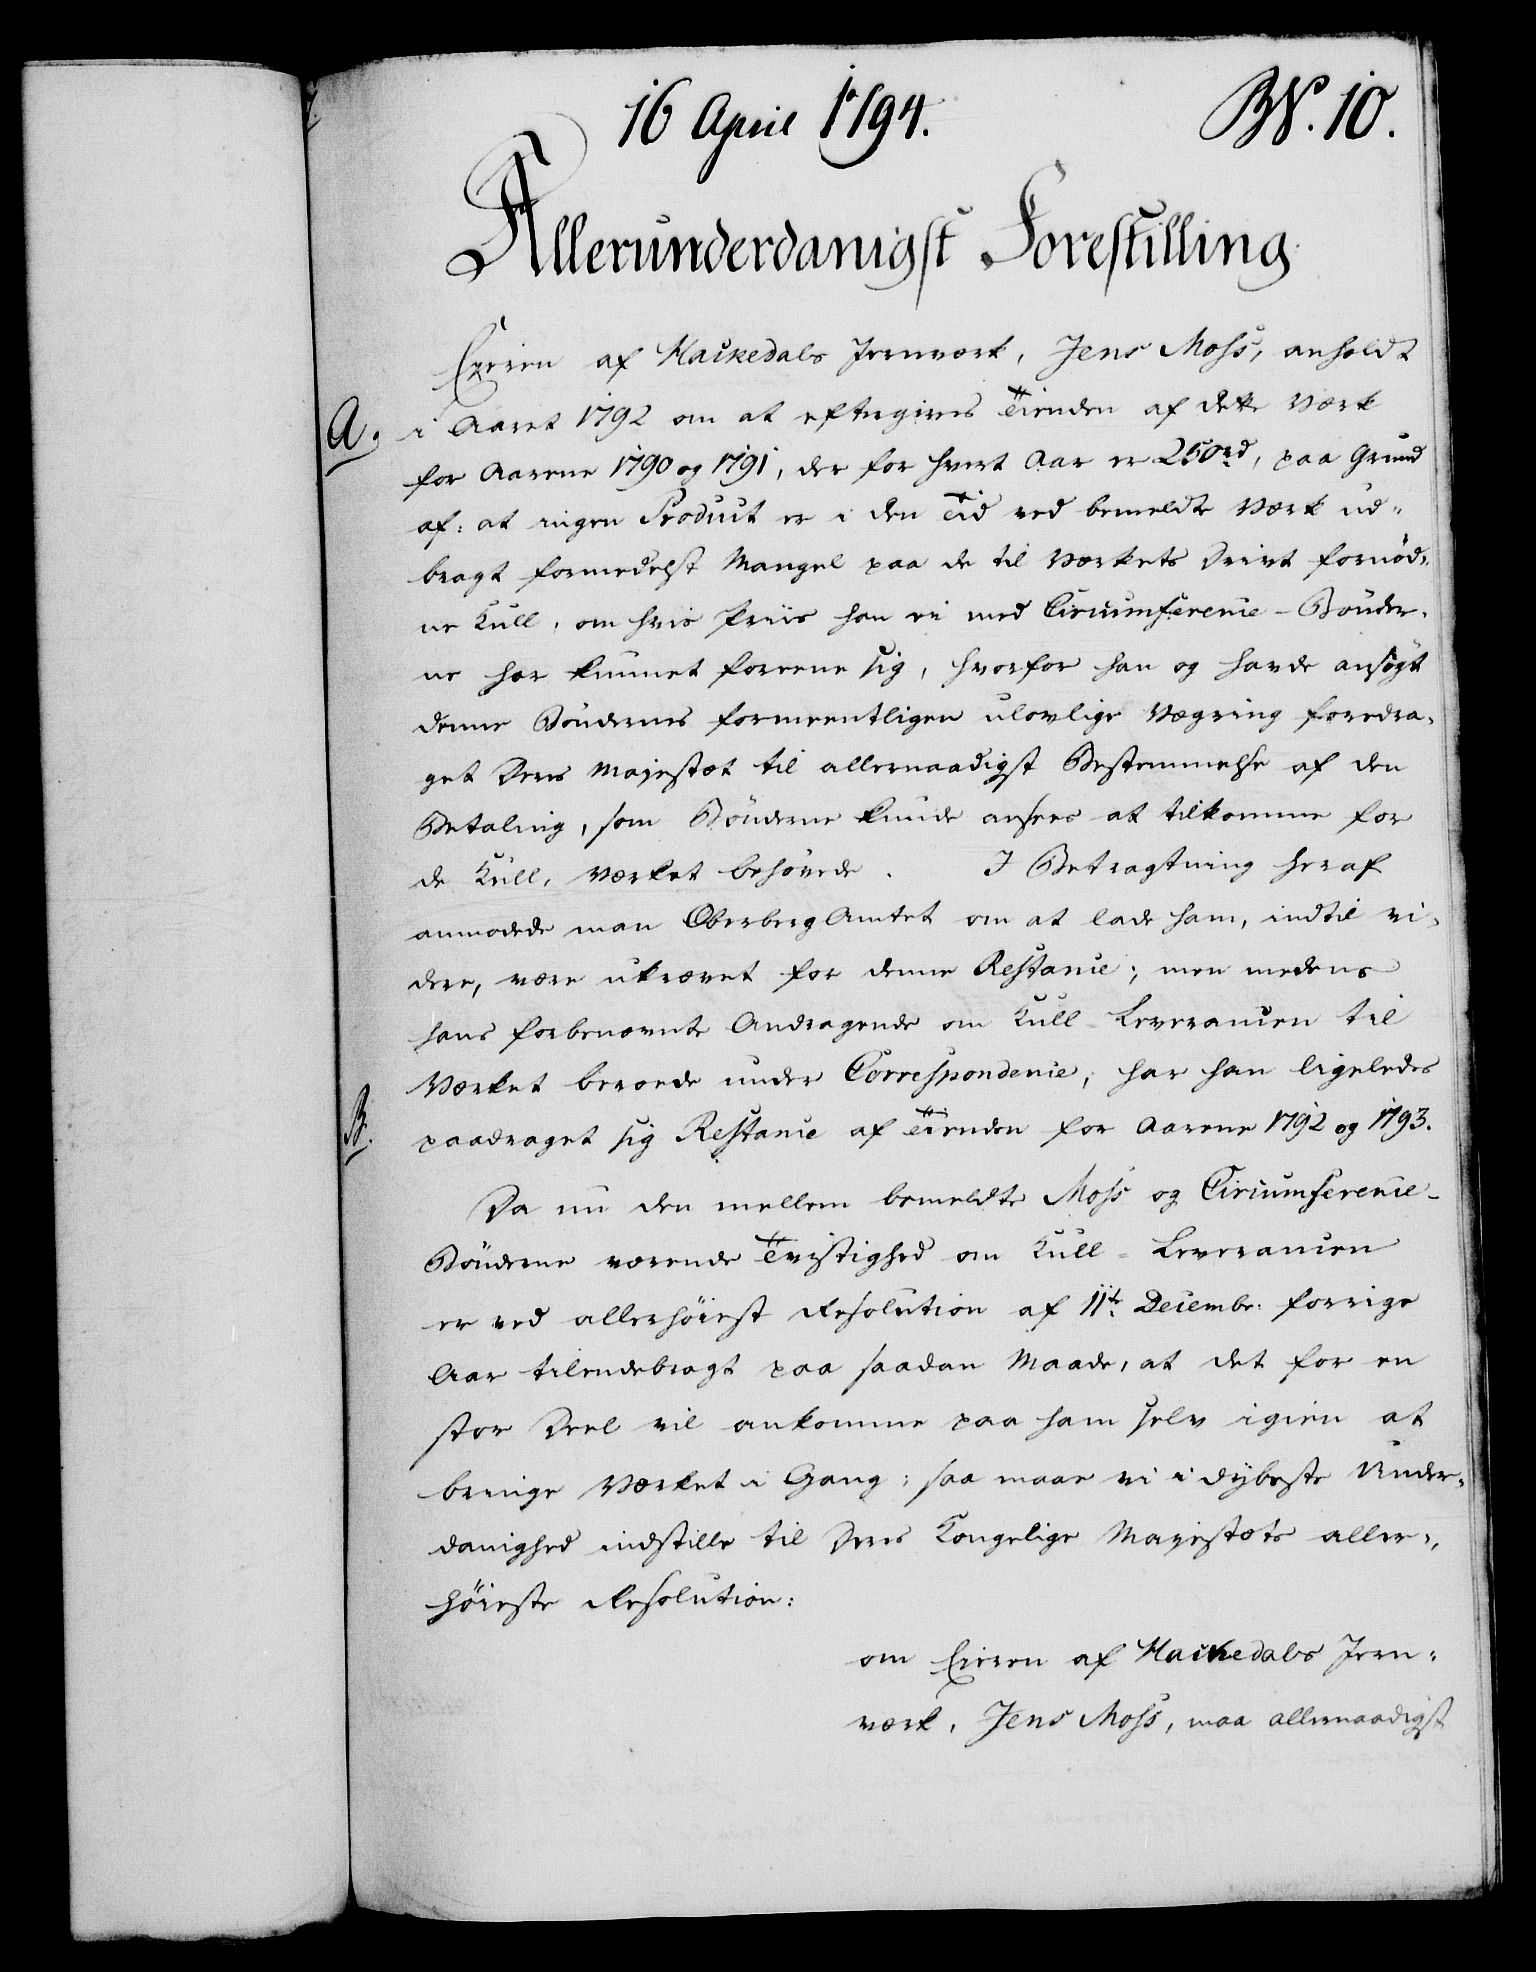 16 April 1794.
BN. 10.
Allerunderdanigst Forestilling
Eieren af Hackedals Jernværk, Jens Moss, anholdt
A. i Aaret 1792 om at eftergives Tienden af dette Værk
for Aarene 1790 og 1791, der for hvert Aar er 250 rd, paa Grund
af: at ingen Product er i den Tid ved bemeldte Værk ud-
bragt formedelst Mangel paa de til Værkets Drivt fornød-
ne Kull, om hvis Priis han ei med Circumference-Bønder-
ne har kunnet foreene sig, hvorfor han og havde ansøgt
denne Bøndernes formeentligen ulovlige Vægring foredra-
get Deres Majestæt til allernaadigst Bestemmelse af den
Betaling, som Bønderne kunde ansees at tilkomme for
de Kull, Værket behøvede. I Betragtning heraf
anmodede man OberbergAmtet om at lade ham, indtil vi-
dere, være ukrævet for denne Restance; men medens
hans forbenævnte Andragende om Kull-Leverancen til
Værket beroede under Correspondence, har han ligeledes
B. paadraget sig Restance af Tienden for Aarene 1792 og 1793.
Da nu den mellem bemeldte Moss og Circumference-
Bønderne værende Tvistighed om Kull-Leverancen
er ved allerhøiest Resolution af 11te Decembr. forrige
Aar tilendebragt paa saadan Maade, at det for en
stor Deel vil ankomme paa ham selv igien at
bringe Værket i Gang; saa maae vi i dybeste Under-
danighed indstille til Deres Kongelige Majestæts aller-
høieste Resolution:
om Eieren af Hackedals Jern-
værk, Jens Moss, maa allernaadigst